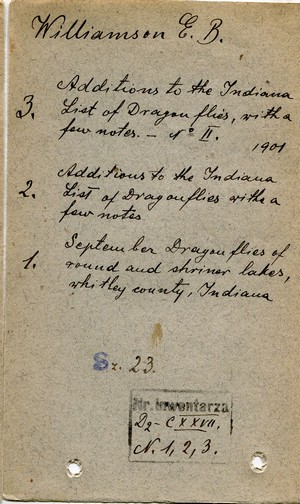 Williamson E. B.
3. Additions to the Indiana
List of Dragonflies, with a
few notes. – No II.
1901
2. Additions to the Indiana
List of Dragonflies with a
few notes
1. September Dragonflies of
round and shriner lakes,
whitley county, Indiana
Sz. 23.
Nr. inwentarza
D2-CXXVII.
N. 1, 2, 3.